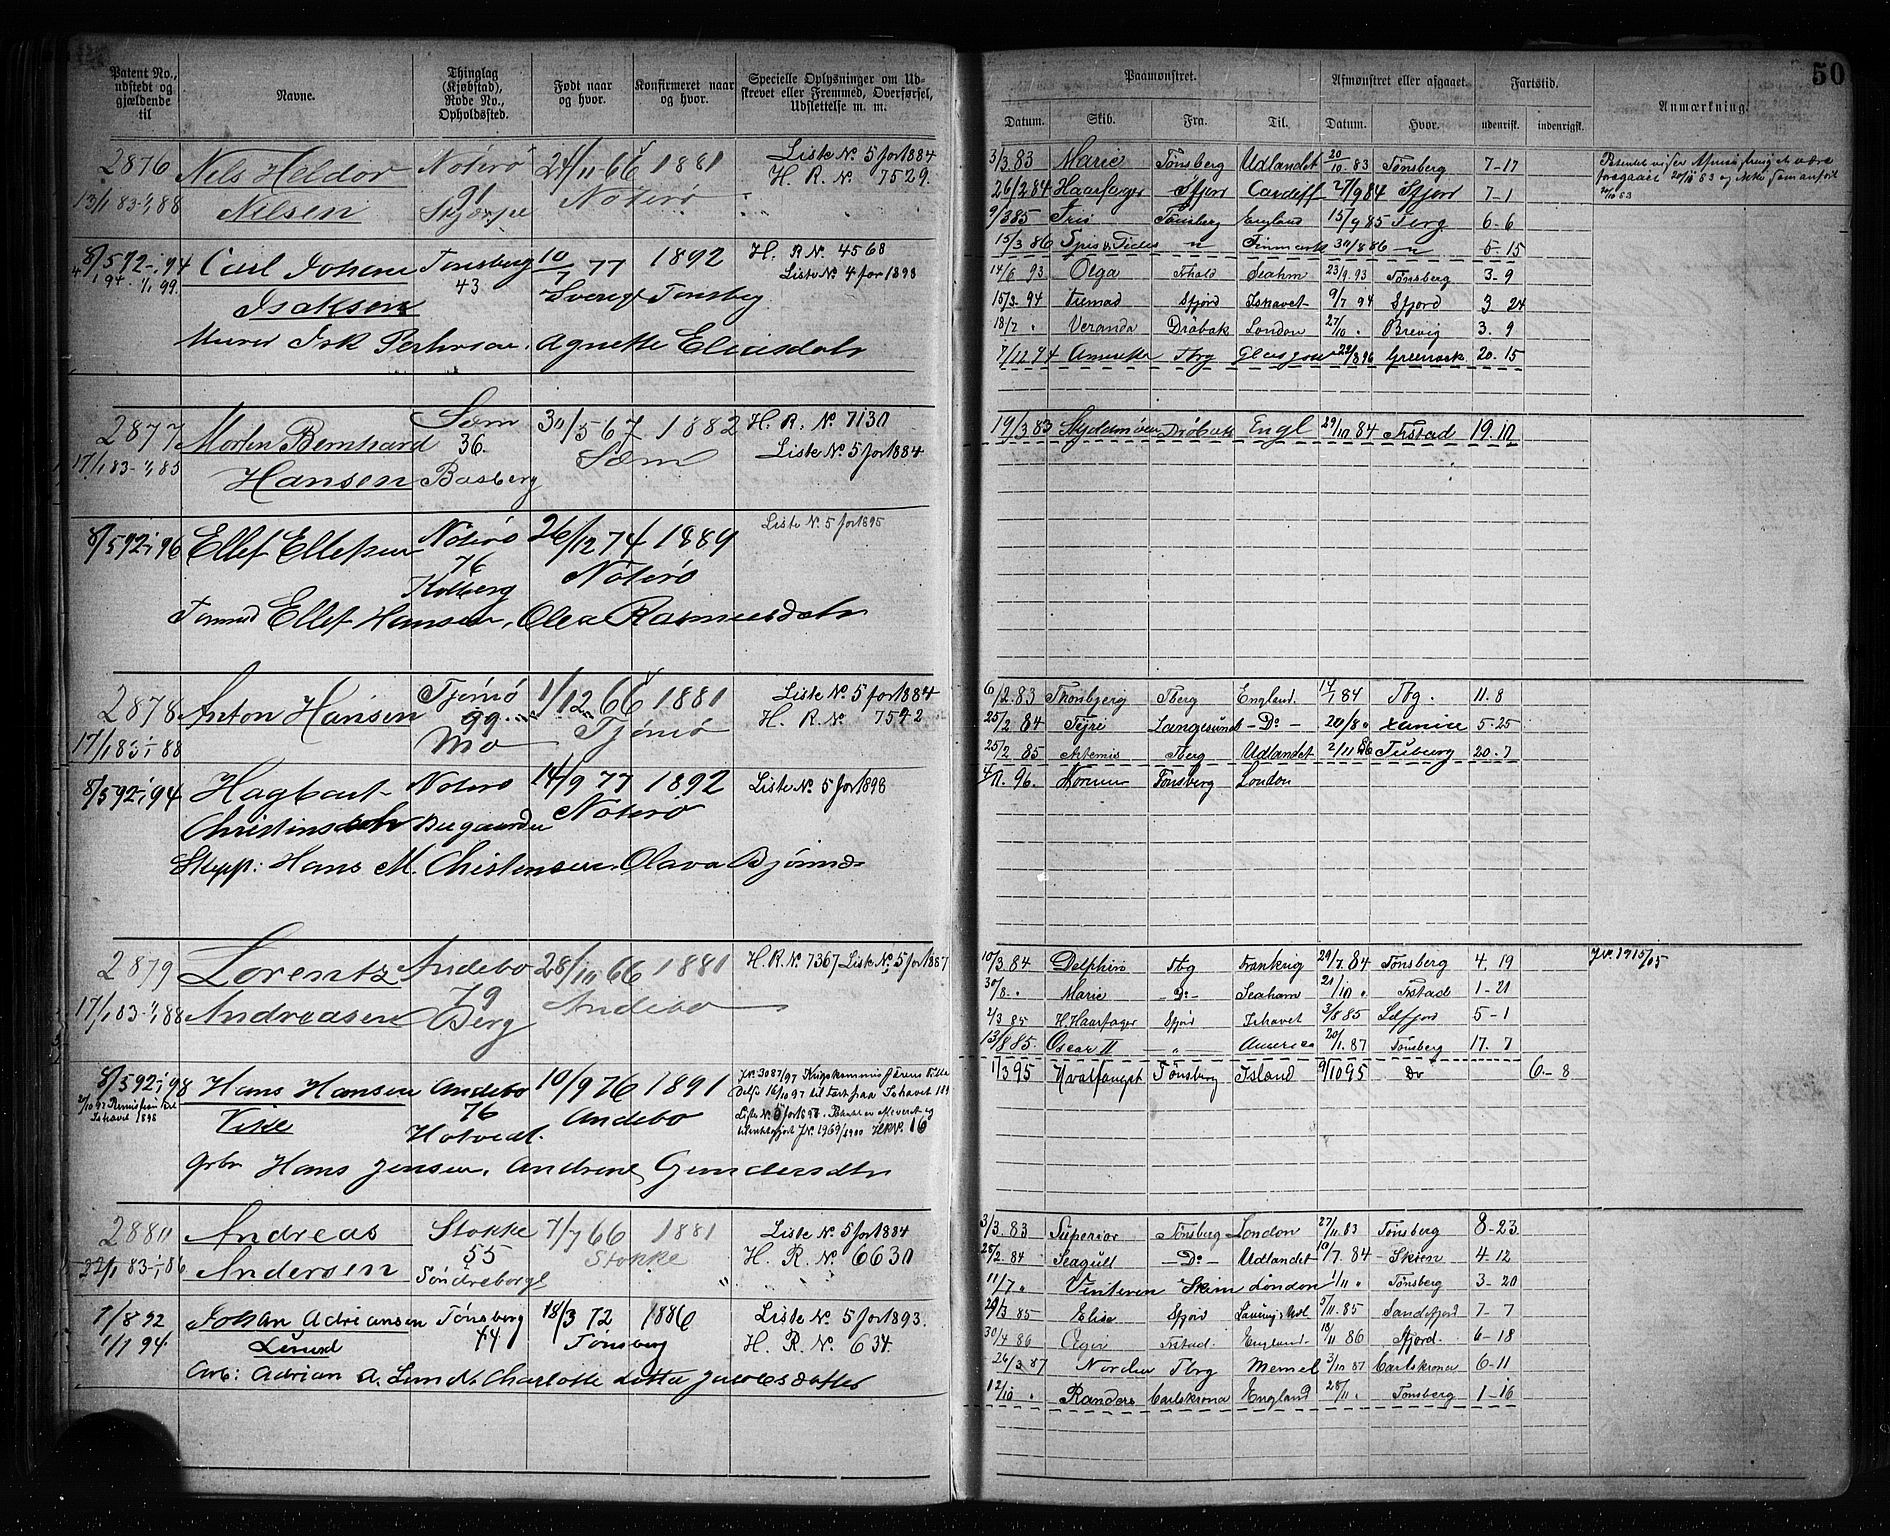 Patent No., udstedt og gjældende til
Navne.
Thinglag (Kjøbstad), Rode No., Opholdssted.
Født naar og hvor.
Konfirmeret naar og hvor.
Specielle Oplysninger om Udskrevet eller Fremmed, Overførsel, Udslettelse m. m.
2876 Nils Heldor Nøterø 24/11 66 1881 Liste No. 5 for 1884
13/1 83-1/1 88 Nilsen 91 Nøterø H. R. No. 7529.
8/5 92-1/1 94 Carl Johan Tønsberg 10/7 77 1892 H. R No. 4568
1/1 99. Isaksen 43 Sverige Tønsberg Liste No. 4 for 1898
2877 Morten Bernhard Sæm 30/5 67 1882 H. R. No. 7130
17/1 83-1/1 85 36. Sæm Liste No. 5 for 1884
Hansen Basberg
8/5 92-1/1 96 Ellef Ellefsen Nøterø 26/12 74 1889 Liste No. 5 for 1895
76 Nøterø
Kolberg
Tømmd Ellef Hansen, Olea Rasmusdatr
2878 Anton Hansen Tjømø 1/12 66 1881 Liste No. 5 for 1884
17/1 83-1/1 88 99 Tjømø H. R. No. 7542
Mo
8/5 92-1/1 94 Hagbart Nøterø 14/9 77 1892 Liste No. 5 for 1898
Nøterø
Skipp: Hans M. Christensen. Olava Bjørnsd
2879 Lorentz Andebo 28/10 66 1881 H. R. No. 7367 Liste No. 5 for 1887
17/1 83-1/1 88 Andreasen 79 Andebo
Berg
8/5 92-1/1 98 Hans Hansen Andebo 10/9 76 1891
76 Andebo
Hotvedt.
Grbr Hans Jensen, Andrine Gundersdtr
2880 Andreas Stokke 7/7 66 1881 Liste No. 5 for 1884
22/1 83-1/1 86 Andersen 55 Stokke H. R. No. 6630
1/8 92 Johan Adriansen Tønsberg 18/3 72 1886 Liste No. 5 for 1893.
1/1 94. Lund 44 Tønsberg H. R. No. 634.
Arb: Adrian A. Lund
50
Paamønstret.
Afmønstret eller afgaaet.
Fartstid.
Anmærkning.
Datum. Skib. Fra. Til. Datum. Hvor. udenrigsk. indenrigsk.
3/3 83 Marie Tønsberg Udlandet 20/10 83 Tønsberg 7-17
26/2 84 Haarfager Sfjor Cardiff 27/9 84 Sfjord 7-1
9/3 85 Tønsberg England 15/9 85 6-6
15/3 86 Finmark 30/8 86 5-15
14/6 93 Olga Seaham 23/9 93 Tønsberg 3-9
15/3-94 Sfjord Ishavet 9/7 94 Sfjord 3 24
18/7 " Veranda Drøbak London 27/10 " Brevig 3. 9
7/11 94 Amerika Tbrg Glasgow 22/8 96 Greenock 20. 15
19/3 83 Drøbak Engl 29/10 84 Fstad 19.10
6/2 83 Thorsbjerg Tberg England. 14/1 84 Tbg. 11. 8
25/2 84 Tyri Langesund -Do- 20/8 " 5-25
25/2 85 Artemis Tberg Udlandet 2/11 86 20. 7
Tønsberg London
10/3 84 Delphin Tbg Frankrig 29/7 84 Tønsberg 4. 19 J.No. 1715/05
30/8 " Marie -Do- Seaham 21/10 " Fstad 1-21
2/3 85 H. Haarfager Sfjord Ishavet 3/8 85 5-1
13/8 85. Oscar II -"- America 20/1. 87 Tønsberg 17. 7
1/3 95 Hvalfangst Tønsberg Island 9/10 95 Do 6-8
3/3 83 Superior Tønsberg London 27/11 83 Tønsberg 8-23
25/2 84 Seagull -Do- Udlandet 10/7 84 Skien 4-12
11/7 " London 1/11 " Tønsberg 3-20
29/3 85 Elise Sfjord 5/11 85 Sandefjord 7-7
30/4 86 Fstad England 18/11 86 Sfjord. 6-18
26/3 87 Norden Tbrg Memel 3/10 87 Carlskrona 6-11
12/10 " Randers Carlskrona England 28/11 " Tønsberg 1-16